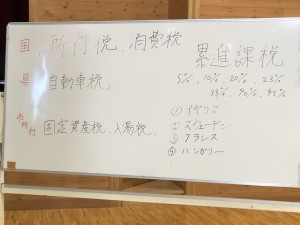 国 所得税、消費税
県 自動車税
市町村 固定資産税、入湯税、
累進課税
5%、10%、20%、23%
33%、40%、45%
①イギリス
②スウェーデン
③フランス
④ハンガリー